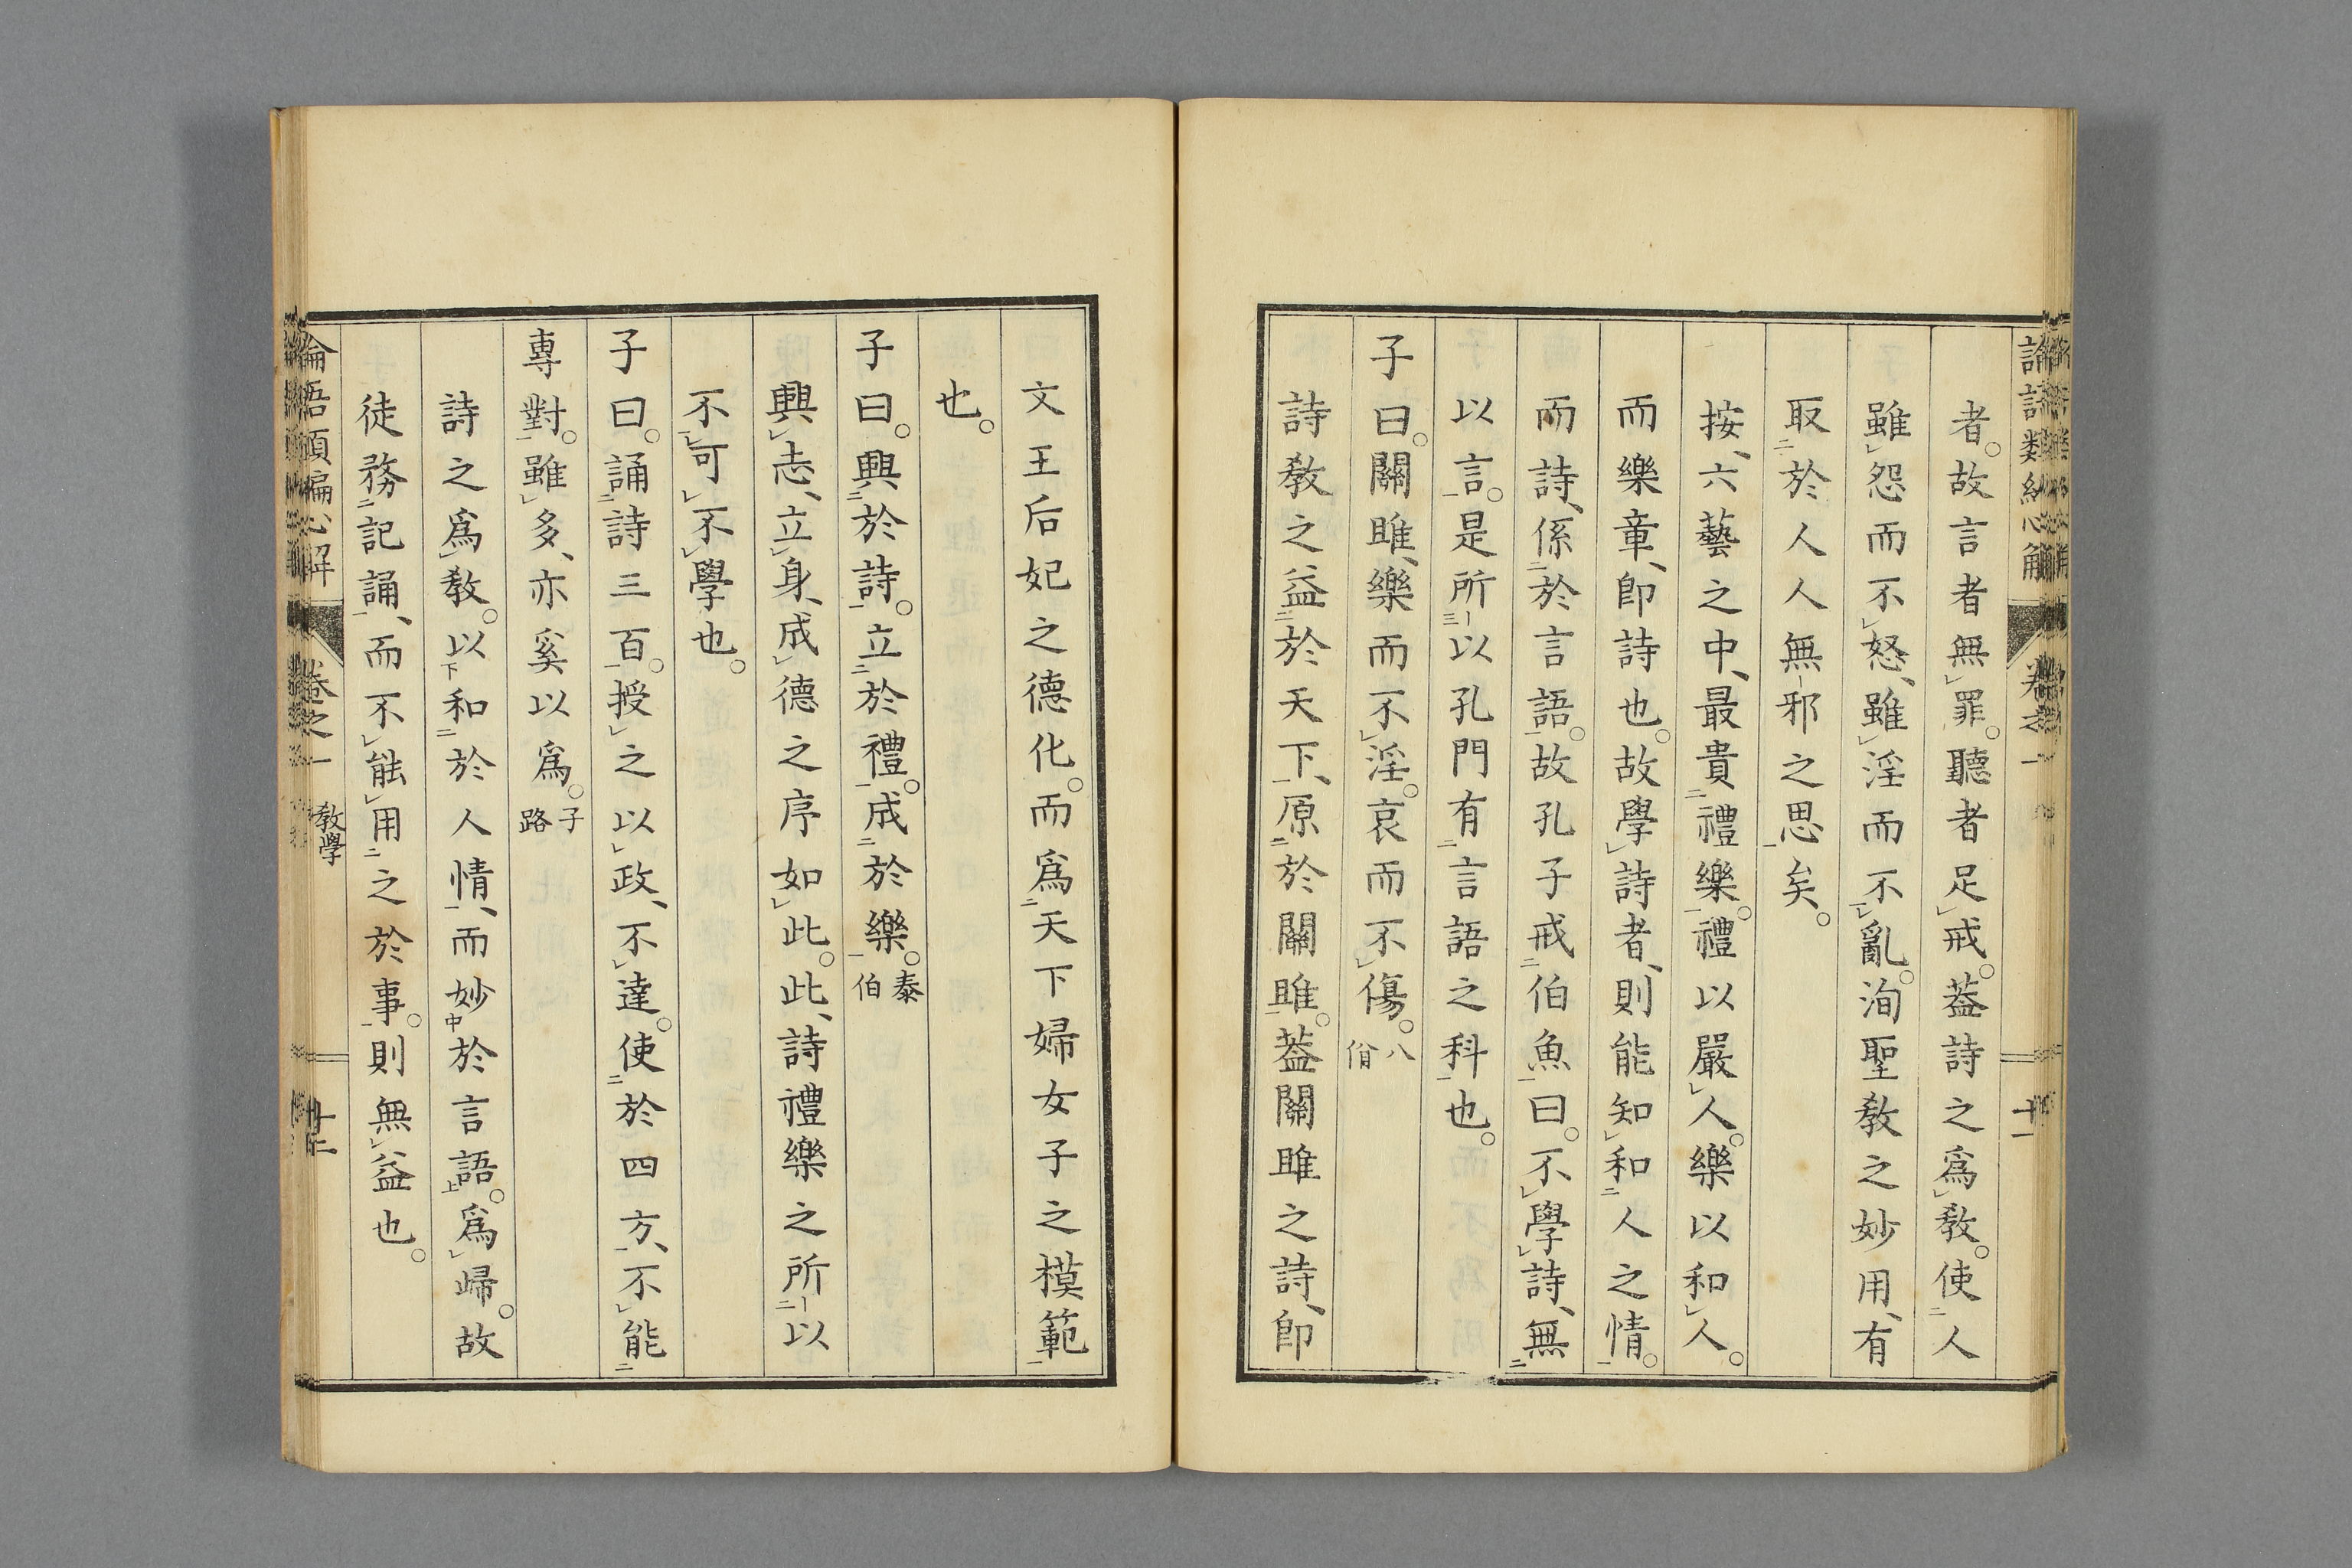 者。故言者無罪。聽者足戒。葢詩之爲敎。使人
雖怨而不怒、雖淫而不亂。洵聖敎之妙用、有
取於人人無邪之思矣。
按、六藝之中、最貴禮樂。禮以嚴人。樂以和人。
而樂章、卽詩也。故學詩者、則能知和人之情。
而詩、係於言語。故孔子戒伯魚曰。不學詩、無
以言。是所以孔門有言語之科也。
子曰。關雎、樂而不淫。哀而不傷。八佾
詩敎之益於天下、原於關雎。葢關雎之詩、卽
文王后妃之德化。而爲天下婦女子之模範
也。
子曰。興於詩。立於禮。成於樂。泰伯
興志、立身、成德之序如此。此、詩禮樂之所以
不可不學也。
子曰。誦詩三百。授之以政、不達。使於四方、不能
專對。雖多、亦奚以爲。子路
詩之爲敎。以和於人情、而妙於言語。爲歸。故
徒務記誦、而不能用之於事。則無益也。
卷之一
敎學